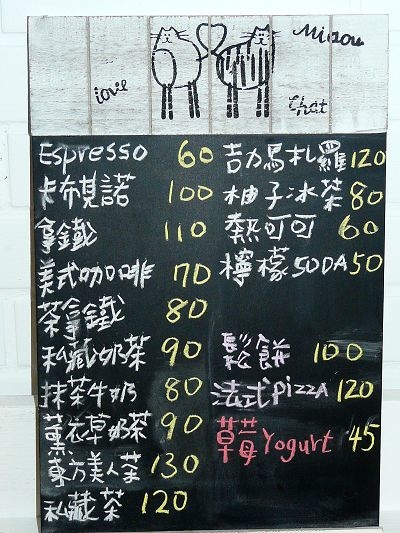 love
Miaou
Chat
Espresso 60
卡布其諾 100
拿鐵 110
美式咖啡 70
茶拿鐵 80
私藏奶茶 90
抹茶牛奶 80
薰衣草奶茶 90
東方美人茶 130
私藏茶 120
吉力馬札羅 120
柚子冰茶 80
熱可可 60
檸檬SODA 50
鬆餅 100
法式pizzA 120
草莓Yogurt 45